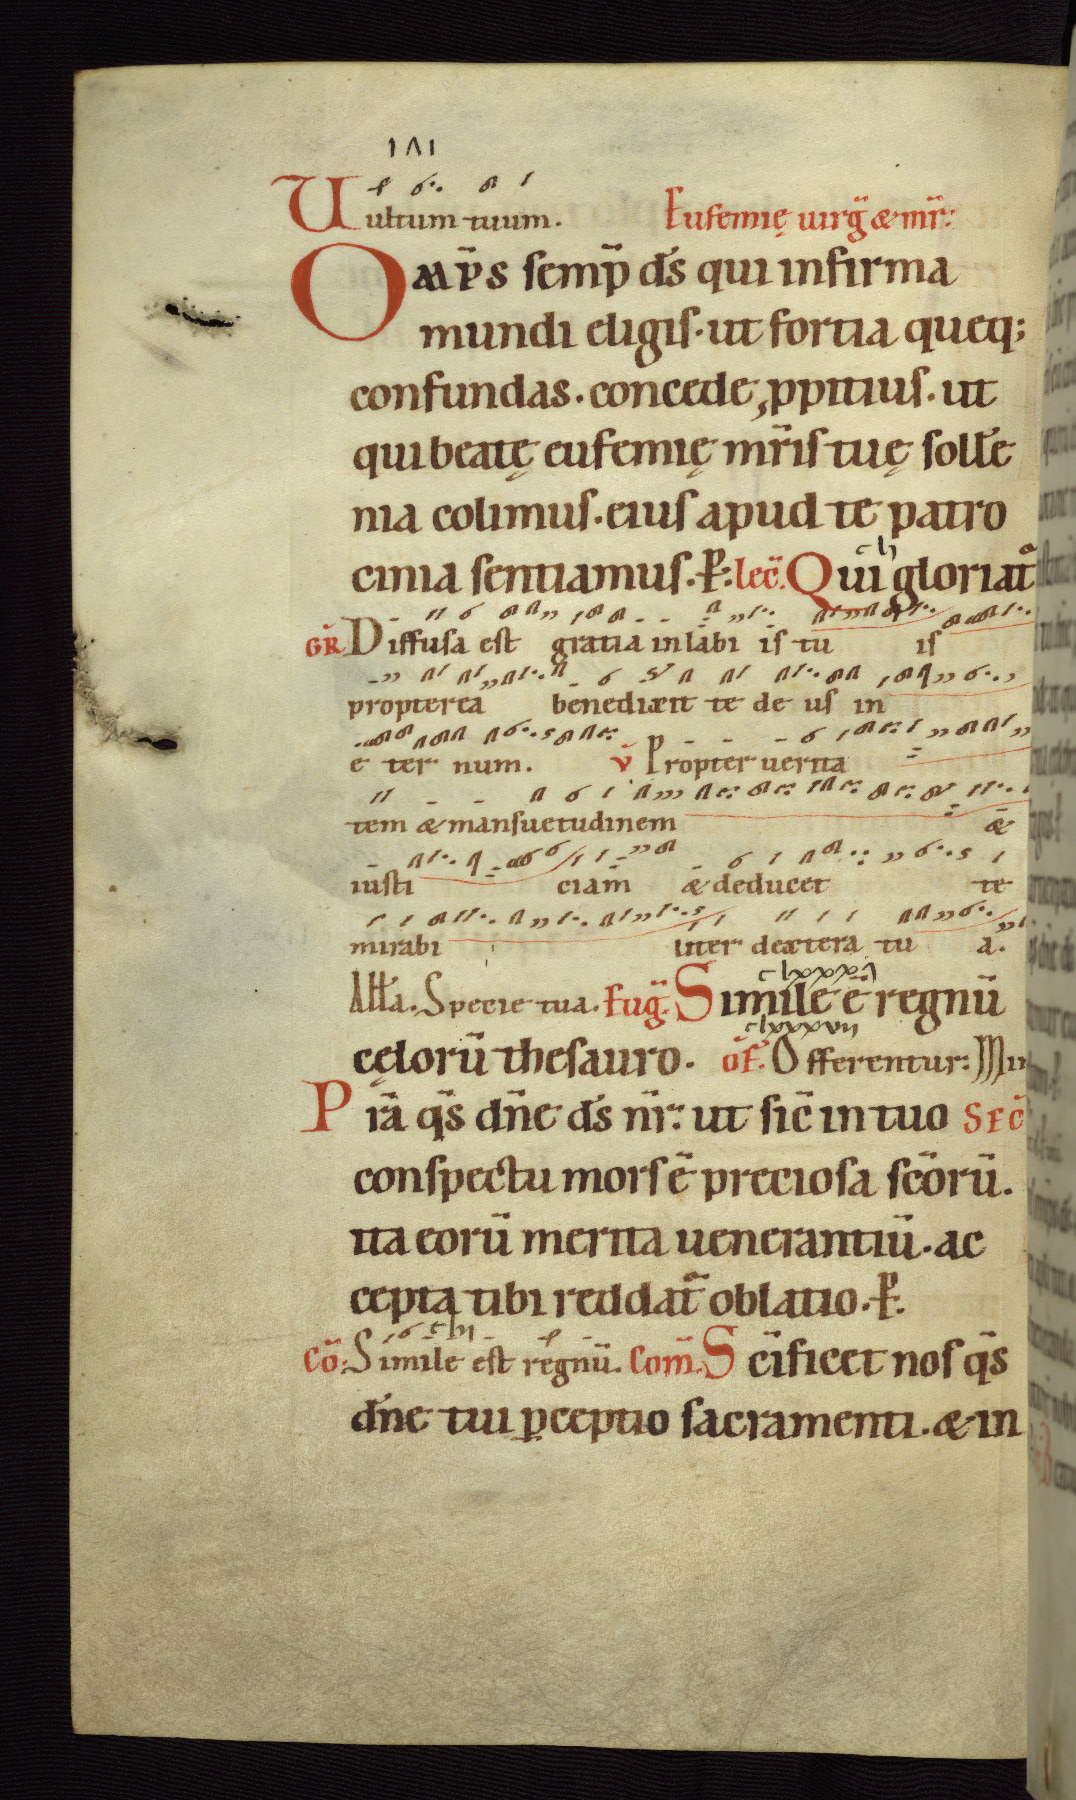 lvi
Uultum tuum. Eufemię uirḡ & mr̄:
Omp̄s semp̄ ds̄ qui infirma
mundi eligis. ut fortia queq;
confundas. concede, ppitius. ut
qui beatę eufemię mr̄is tuę solle̅
nia colimus. eius apud te patro
cinia sentiamus. P̵: lec̄. Qui gloriat᷑
GR̄ Diffusa est gratia in labi is tu is
propterea benedixit te de us in
e ter num. v̄ Propter uerita
tem & mansuetudinem &
iusti ciam & deducet te
mirabi liter dextera tu a.
All̄a. Specie tua. Eug̅. Simile ē regnū
clxxxvii
cęlorū thesauro. of̄. Offerentur: Mi
Prā qs̄ dn̄e ds̄ nr̄: ut sic̄ in tuo SEC̄
conspectu mors ē preciosa sc̄orū.
ita eorū merita uenerantiū. ac
cepta tibi reddat᷑ oblatio. P̵.
Cō: Simile est regnū. Com̄. Sc̄ificet nos qs̄
dn̄e tui ꝑceptio sacramenti. & in